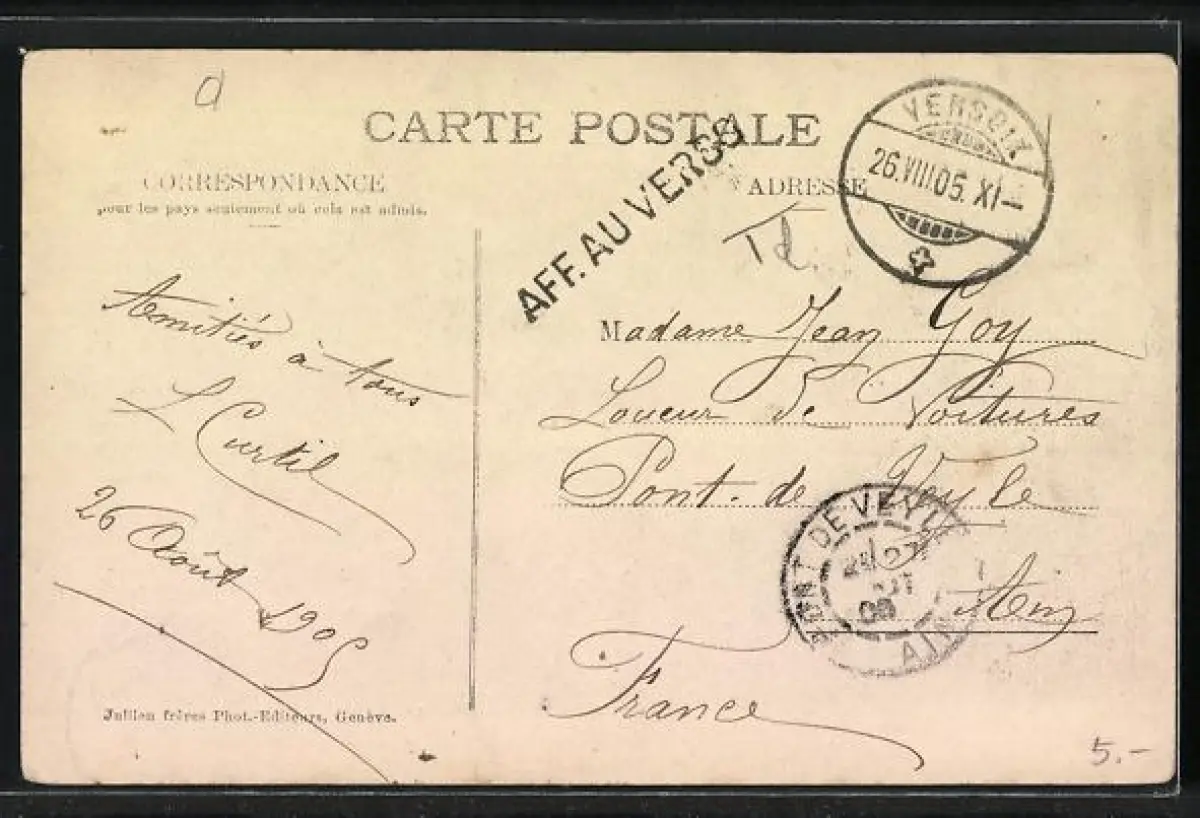 d
CARTE POSTALE
CORRESPONDANCE
pour les pays seulement où cela est admis.
AFF. AU VERSO
ADRESSE
VERSOIX
26.VIII.05.XI—
Td.
Amitiés à tous
L Curtil
26 Août 1905
Madame Jean Goy
Loueur de Voitures
Pont-de Veyle
Ain
France
PONT DE VEYLE
AIN
Jullien frères Phot.-Editeurs, Genève.
5.-